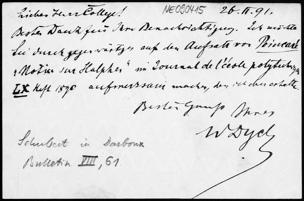 Lieber Herr College! NE090415 26.II.91.
Besten Dank für Ihre Benachrichtigung. Ich möchte
Sie durch gegenwärtiges auf den Aufsatz von Poincaré
"Notice sur Halphen" in Journal de l'école polytechnique
LX Heft 1890 aufmerksam machen, den ich eben erhalte.
Besten Gruss Ihres
W Dyck
Schubert in Darboux
Bulletin VIII, 61